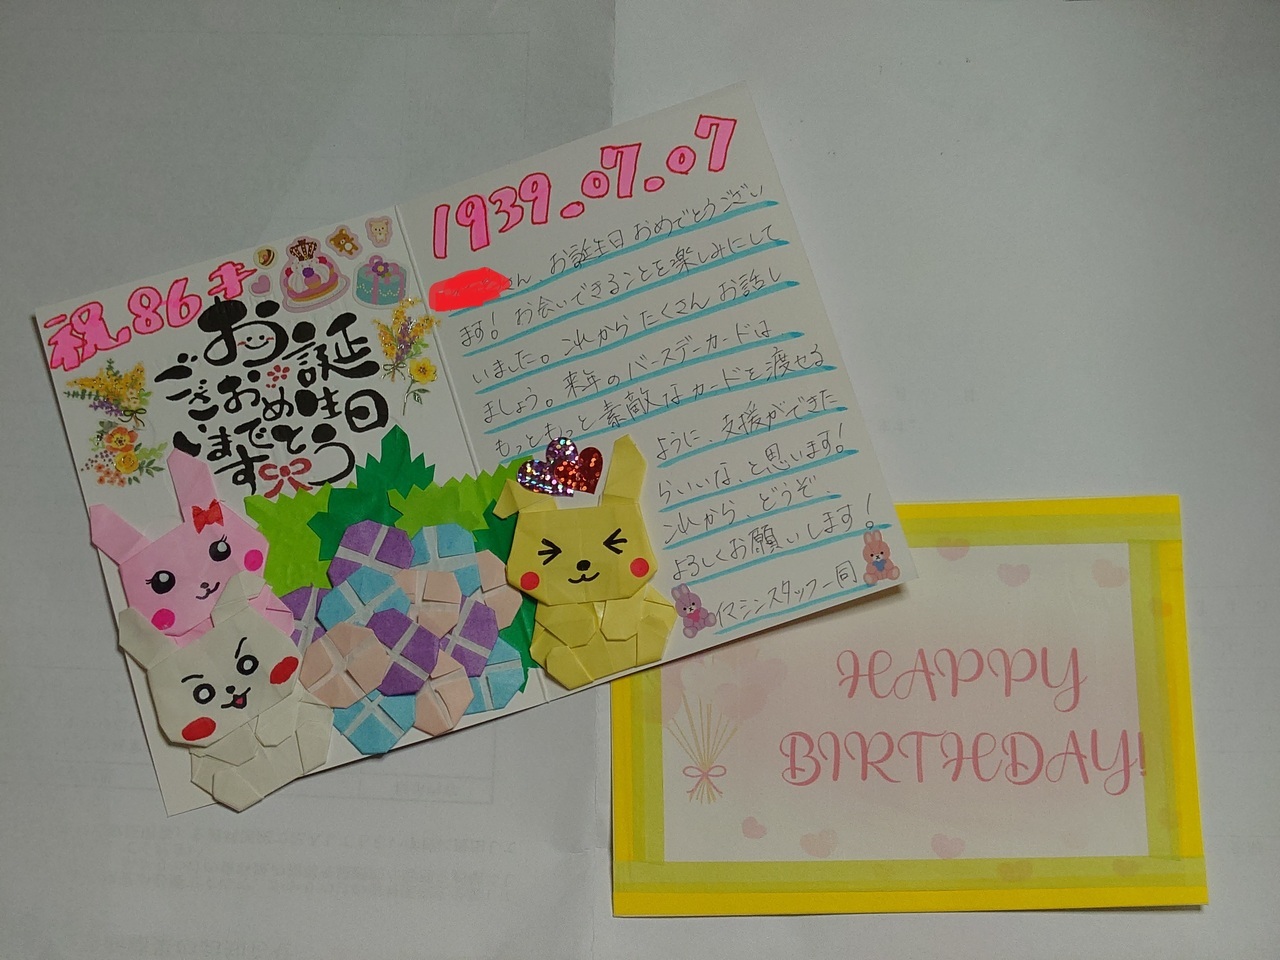 祝86才
お誕生日
おめでとう
ございます
1939.07.07
さん、お誕生日おめでとうござい
ます！お会いできることを楽しみにして
いました。これからたくさんお話し
ましょう。来年のバースデーカードは
もっともっと素敵なカードを渡せる
ように、支援ができた
らいいな、と思います！
これから、どうぞ
よろしくお願いします！
イマジンスタッフ一同
HAPPY
BIRTHDAY!